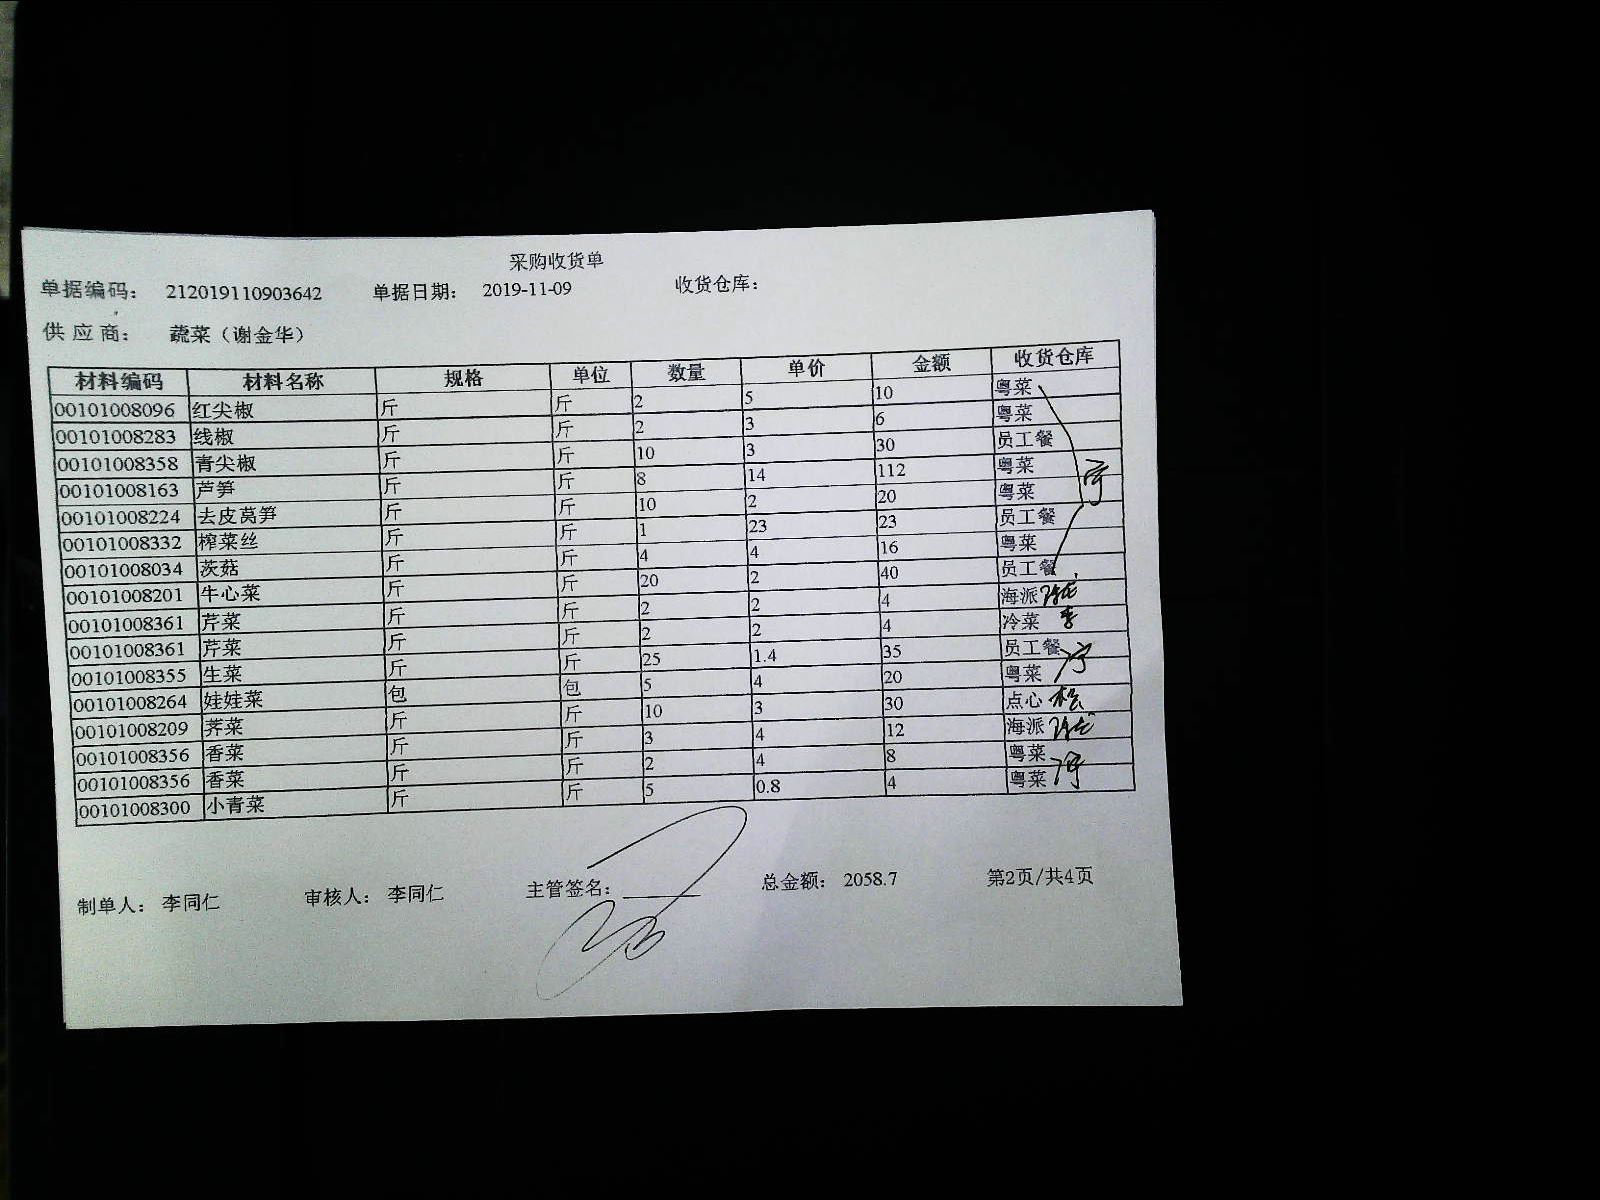 采购收货单
单据编码： 212019110903642 单据日期： 2019-11-09 收货仓库：
供应商： 蔬菜（谢金华）
材料编码 材料名称 规格 单位 数量 单价 金额 收货仓库
00101008096 红尖椒 斤 斤 2 5 10 粤菜
00101008283 线椒 斤 斤 2 3 6 粤菜
00101008358 青尖椒 斤 斤 10 3 30 员工餐
00101008163 芦笋 斤 斤 8 14 112 粤菜
00101008224 去皮莴笋 斤 斤 10 2 20 粤菜
00101008332 榨菜丝 斤 斤 1 23 23 员工餐
00101008034 茨菇 斤 斤 4 4 16 粤菜
00101008201 牛心菜 斤 斤 20 2 40 员工餐
00101008361 芹菜 斤 斤 2 2 4 海派
00101008361 芹菜 斤 斤 2 2 4 冷菜
00101008355 生菜 斤 斤 25 1.4 35 员工餐
00101008264 娃娃菜 包 包 5 4 20 粤菜
00101008209 荠菜 斤 斤 10 3 30 点心
00101008356 香菜 斤 斤 3 4 12 海派
00101008356 香菜 斤 斤 2 4 8 粤菜
00101008300 小青菜 斤 斤 5 0.8 4 粤菜
制单人： 李同仁 审核人： 李同仁 主管签名： 总金额： 2058.7 第2页/共4页